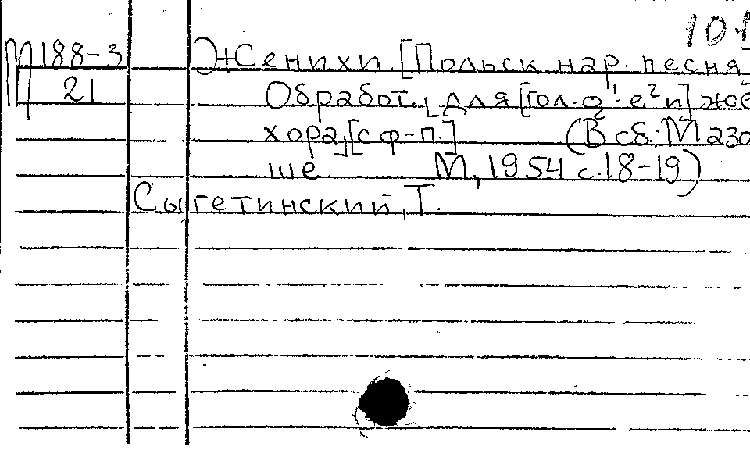 101
М188-3 Женихи. [Польск. нар. песня]
Ц 21 Обработ. для [гол. g¹-e² и] же
хора, [с ф-п.] (В сб. Мазо
ше М, 1954 с. 18-19)
Сыгетинский, Т.